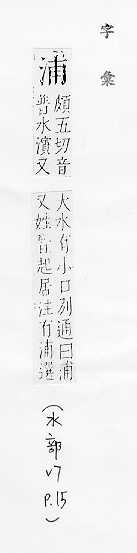 字彙
浦
頗五切音
普水濱又
大水有小口別通曰浦
又姓晉起居注有浦選
(水部 V7 P.15)